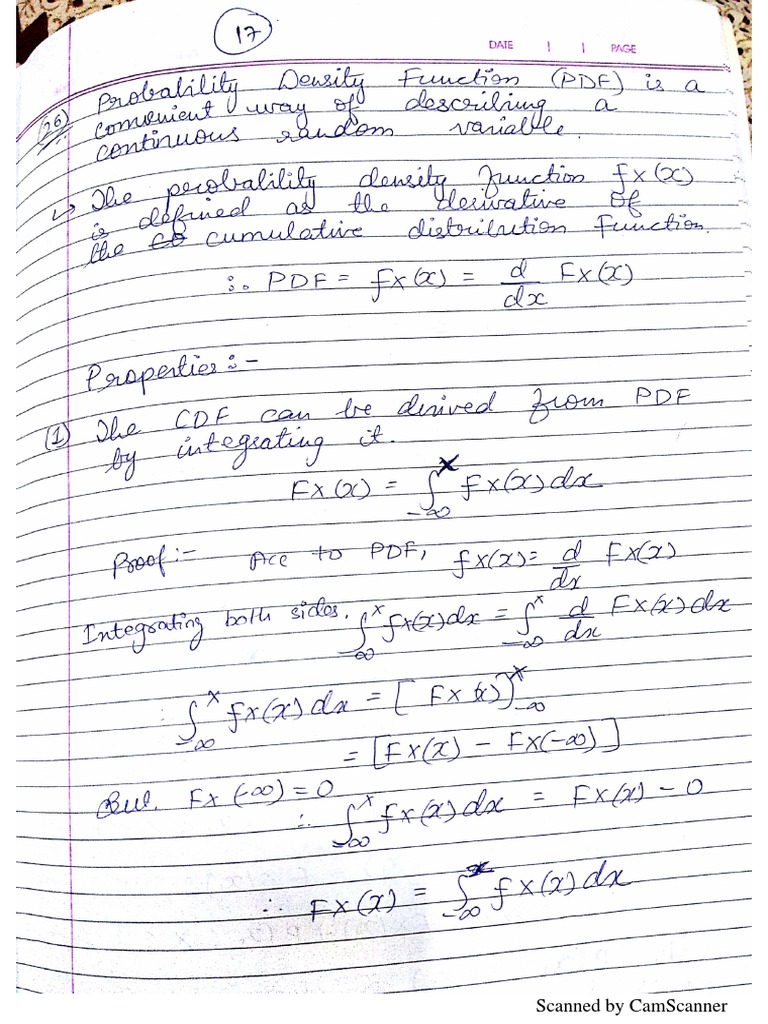 17
DATE | | PAGE
(26) Probability Density Function (PDF) is a
convenient way of describing a
continuous random variable.
↳ The probability density function fx(x)
is defined as the derivative of
the cumulative distribution function.
∴ PDF = fx(x) = d/dx Fx(x)
Properties :-
(1) The CDF can be derived from PDF
by integrating it.
Fx(x) = ∫_{-∞}^{x} fx(x) dx
Proof :- Acc to PDF, fx(x) = d/dx Fx(x)
Integrating both sides. ∫_{-∞}^{x} fx(x) dx = ∫_{-∞}^{x} d/dx Fx(x) dx
∴ ∫_{-∞}^{x} fx(x) dx = [Fx(x)]_{-∞}^{x}
= [Fx(x) - Fx(-∞)]
But. Fx(-∞) = 0
∴ ∫_{-∞}^{x} fx(x) dx = Fx(x) - 0
∴ Fx(x) = ∫_{-∞}^{x} fx(x) dx
Scanned by CamScanner